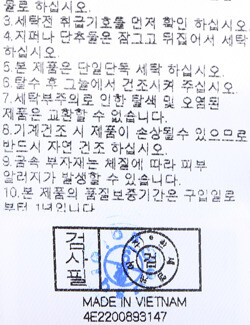 물로 하십시오.
3.세탁전 취급기호를 먼저 확인 하십시오.
4.지퍼나 단추들은 잠그고 뒤집어서 세탁
하십시오.
5.본 제품은 단일단독 세탁 하십시오.
6.탈수 후 그늘에서 건조시켜 주십시오.
7.세탁부주의로 인한 탈색 및 오염된
제품은 교환할 수 없습니다.
8.기계건조 시 제품이 손상될수 있으므로
반드시 자연 건조 하십시오.
9.금속 부자재는 체질에 따라 피부
알러지가 발생할 수 있습니다.
10.본 제품의 품질보증기간은 구입일로
부터 1년입니다
검사필
검
MADE IN VIETNAM
4E2200893147